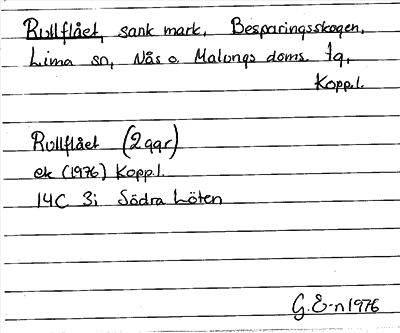 Rullflået, sank mark, Besparingsskogen,
Lima sn, Nås o. Malungs doms. tg,
Koppl.
Rullflået (2 ggr)
ek (1976) Koppl.
14C 3i Södra Löten
G. E-n 1976